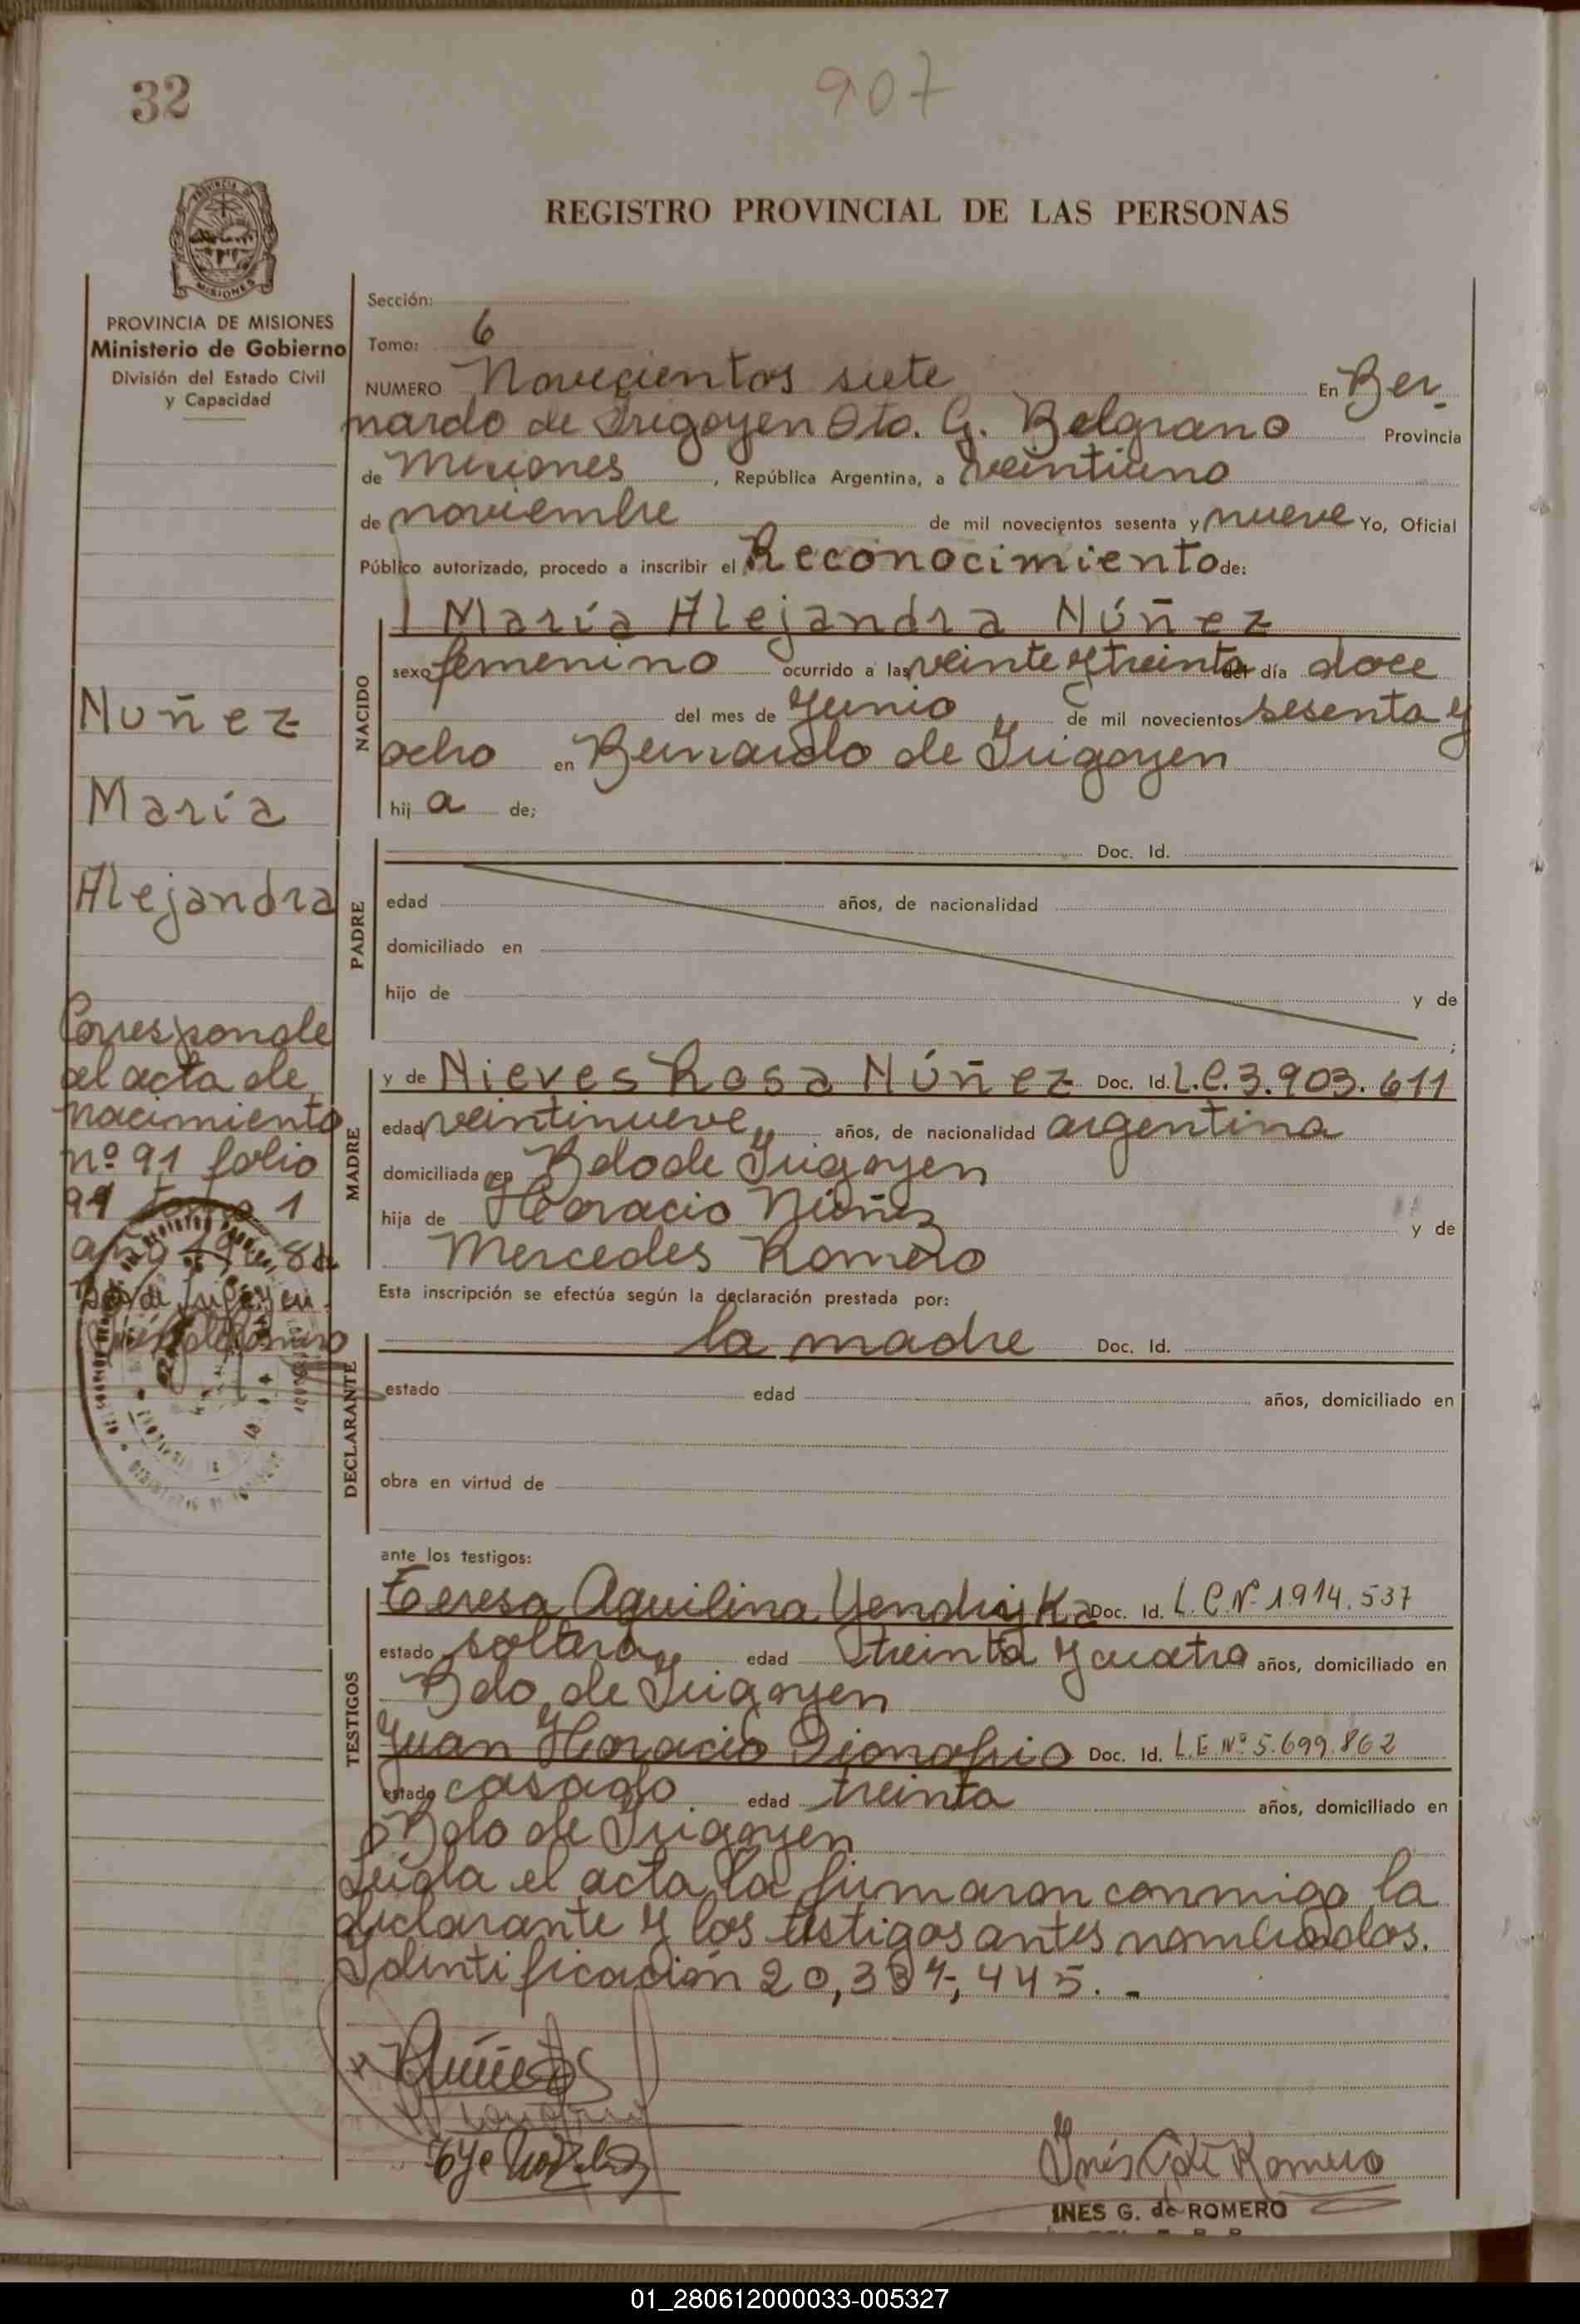 32
907
REGISTRO PROVINCIAL DE LAS PERSONAS
PROVINCIA DE MISIONES
Ministerio de Gobierno
División del Estado Civil
y Capacidad
Sección:
Tomo: 6
NUMERO Novecientos siete En Ber-
nardo de Irigoyen Dto. G. Belgrano Provincia
de Misiones, República Argentina, a veintiuno
de noviembre de mil novecientos sesenta y nueve Yo, Oficial
Público autorizado, procedo a inscribir el Reconocimiento de:
NACIDO
María Alejandra Núñez
sexo femenino ocurrido a las veinte y treinta del día doce
del mes de Junio de mil novecientos sesenta y
ocho en Bernardo de Irigoyen
hij a de;
Nuñez
María
Alejandra
PADRE
Doc. Id.
edad años, de nacionalidad
domiciliado en
hijo de y de
;
Corresponde
al acta de
nacimiento
nº 91 folio
91 tomo 1
MADRE
y de Nieves Rosa Núñez Doc. Id. L.C. 3.903.611
edad veintinueve años, de nacionalidad argentina
domiciliada en Bdo de Irigoyen
hija de Horacio Núñez y de
Mercedes Romero
Esta inscripción se efectúa según la declaración prestada por:
DECLARANTE
la madre Doc. Id.
estado edad años, domiciliado en
obra en virtud de
ante los testigos:
TESTIGOS
Teresa Aquilina Doc. Id. L.C. Nº 1.914.537
estado soltera edad treinta y cuatro años, domiciliado en
Bdo. de Irigoyen
Juan Horacio Dionofrio Doc. Id. L.E. Nº 5.699.862
estado casado edad treinta años, domiciliado en
Bdo de Irigoyen
Leída el acta la firmaron conmigo la
declarante y los testigos antes nombrados.
Identificación 20,337,445.-
Inés G de Romero
INES G. de ROMERO
01_280612000033-005327